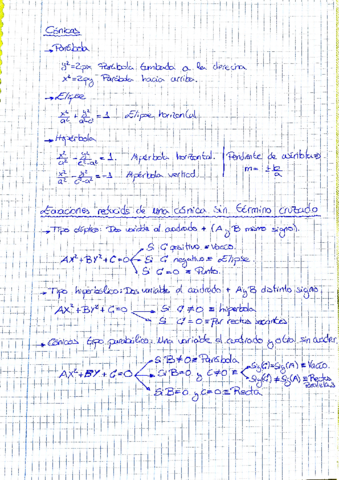 Cónicas
→ Parábola
y²=2px Parábola tumbada a la derecha
x²=2py Parábola hacia arriba.
→ Elipse
x²/a² + y²/ = 1 Elipse horizontal
→ Hipérbola
x²/a² - y²/c²-a² = 1. Hipérbola horizontal. | Pendiente de asíntotas
x²/a² - y²/c²-a² = -1 Hipérbola vertical. m= ± b/a
Ecuaciones reducids de una cónica sin término cruzado
→ Tipo elíptico: Dos variable al cuadrado + (A y B mismo signo).
Si G positivo ≡ Vacío.
AX²+BY²+G=0 Si G negativo ≡ Elipse
Si G=0 ≡ Punto.
→ Tipo hiperbólico: Dos variable al cuadrado + A y B distinto signo.
AX²+BY²+G=0 Si G≠0 ≡ hipérbola
Si G=0 ≡ Par rectas secantes
→ Cónicas tipo parabólico: Una variable al cuadrado y otro sin cuadrar.
Si B≠0 ≡ Parábola
AX²+BY+G=0 Si B=0 y G≠0 ≡ Sg(G)=Sg(A) ≡ Vacío.
Sg(G)≠Sg(A) ≡ Rectas paralelas
Si B=0 y G=0 ≡ Recta